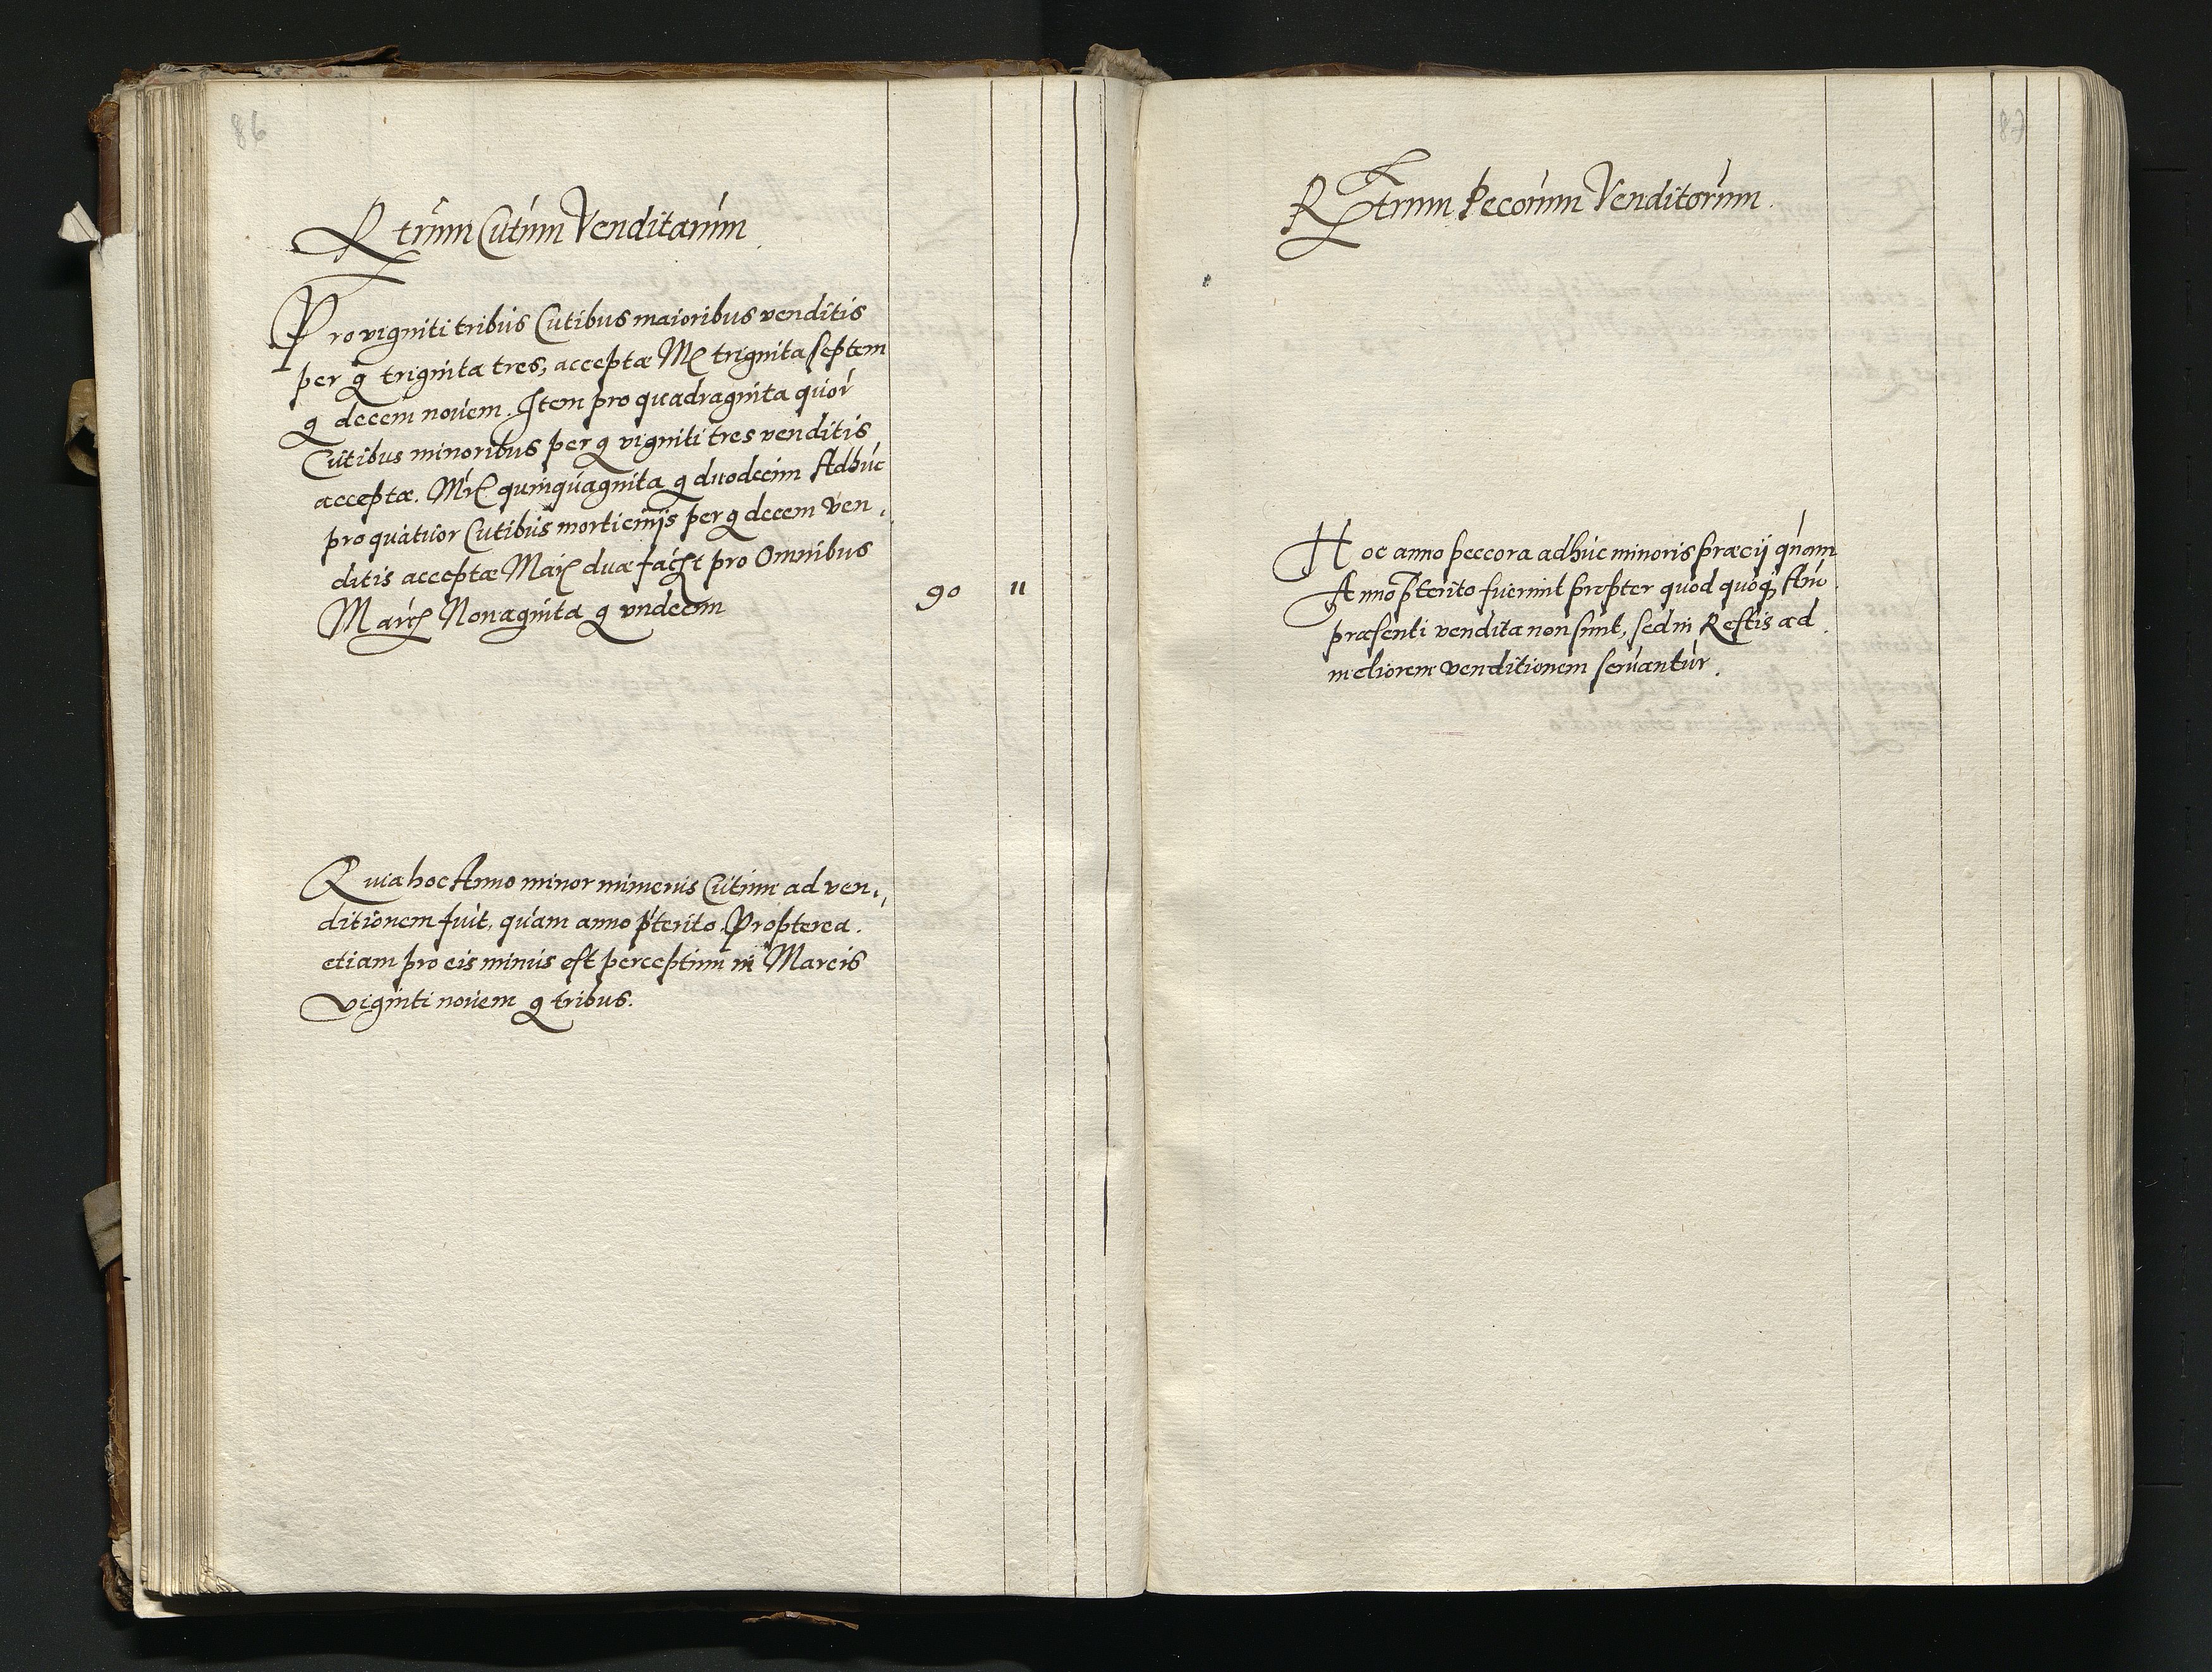 86
Rtrum Cutium Venditarum
Pro vigniti tribus Cutibus maioribus venditis
per g trignita tres, acceptæ Mr trignita septem
g decem novem. Item pro quadragnita quor
Cutibus minoribus per g vigniti tres venditis
acceptæ. Mr quinquagnita g duodecim Adhuc
pro quatuor Cutibus morticinijs per g decem Ven,
ditis acceptæ Mar duæ facit pro Omnibus
Marc Nonagnita g vndecem
90 11
Quia hoc Anno minor numerus Cutium ad ven,,
ditionem fuit, quam anno pterito. Propterea.
etiam pro eis minus est perceptum in Marcis
viginti novem g tribus.
87
Rtrum Pecorum Venditorum.
Hoc anno peccora adhuc minoris præcij quam
Anno pterito fuerunt propter quod quoq Ano
præsenti vendita non sunt, sed in Restis ad
meliorem venditionem servantur.